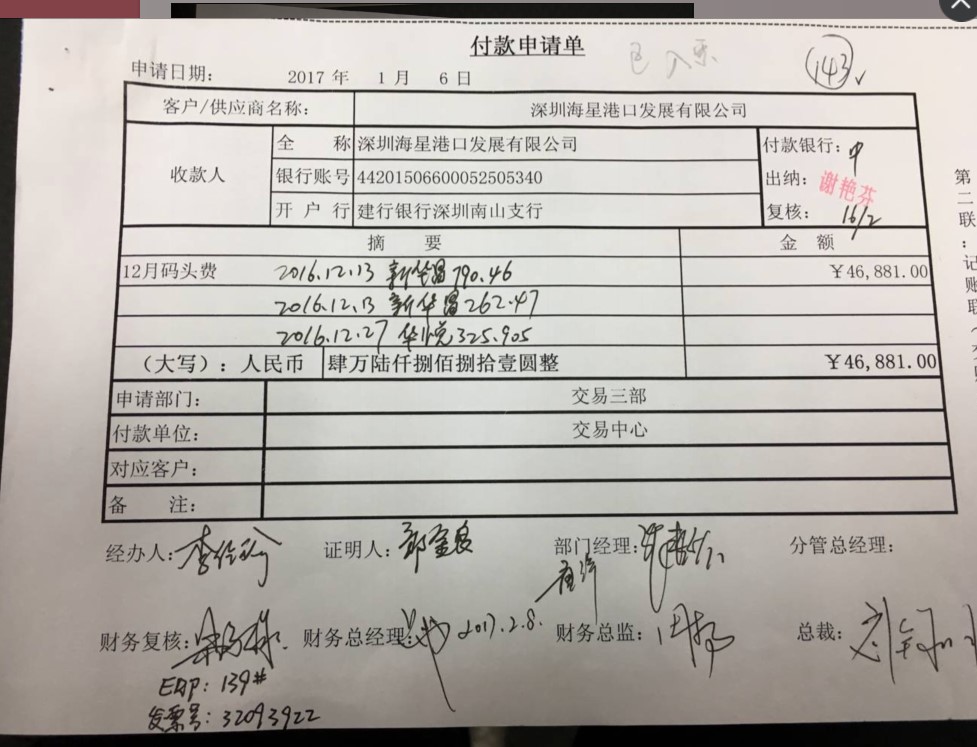 付款申请单
143
申请日期： 2017 年 1 月 6 日
客户/供应商名称： 深圳海星港口发展有限公司
收款人
全 称 深圳海星港口发展有限公司
银行账号 44201506600052505340
开 户 行 建行银行深圳南山支行
付款银行：中
出纳：谢艳芬
复核： 16/2
摘 要 金 额
12月码头费 2016.12.13 新华昌 790.46 ￥46,881.00
2016.12.13 新华昌 262.47
2016.12.27 华悦 325.905
（大写）：人民币 肆万陆仟捌佰捌拾壹圆整 ￥46,881.00
申请部门： 交易三部
付款单位： 交易中心
对应客户：
备 注：
第二联：记账联
经办人： 证明人： 部门经理： 分管总经理：
财务复核： 财务总经理： 2017.2.8. 财务总监： 总裁：
ERP：139#
发票号：32093922